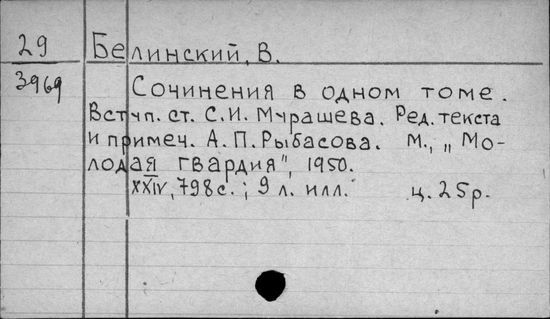 29 Белинский, В.
3969 Сочинения в одном томе.
Вступ. ст. С.И. Мурашева. Ред. текста
и примеч. А.П. Рыбасова. М., „Мо-
лодая гвардия", 1950.
XXIV, 798 с.; 9 л. илл. ц. 25 р.